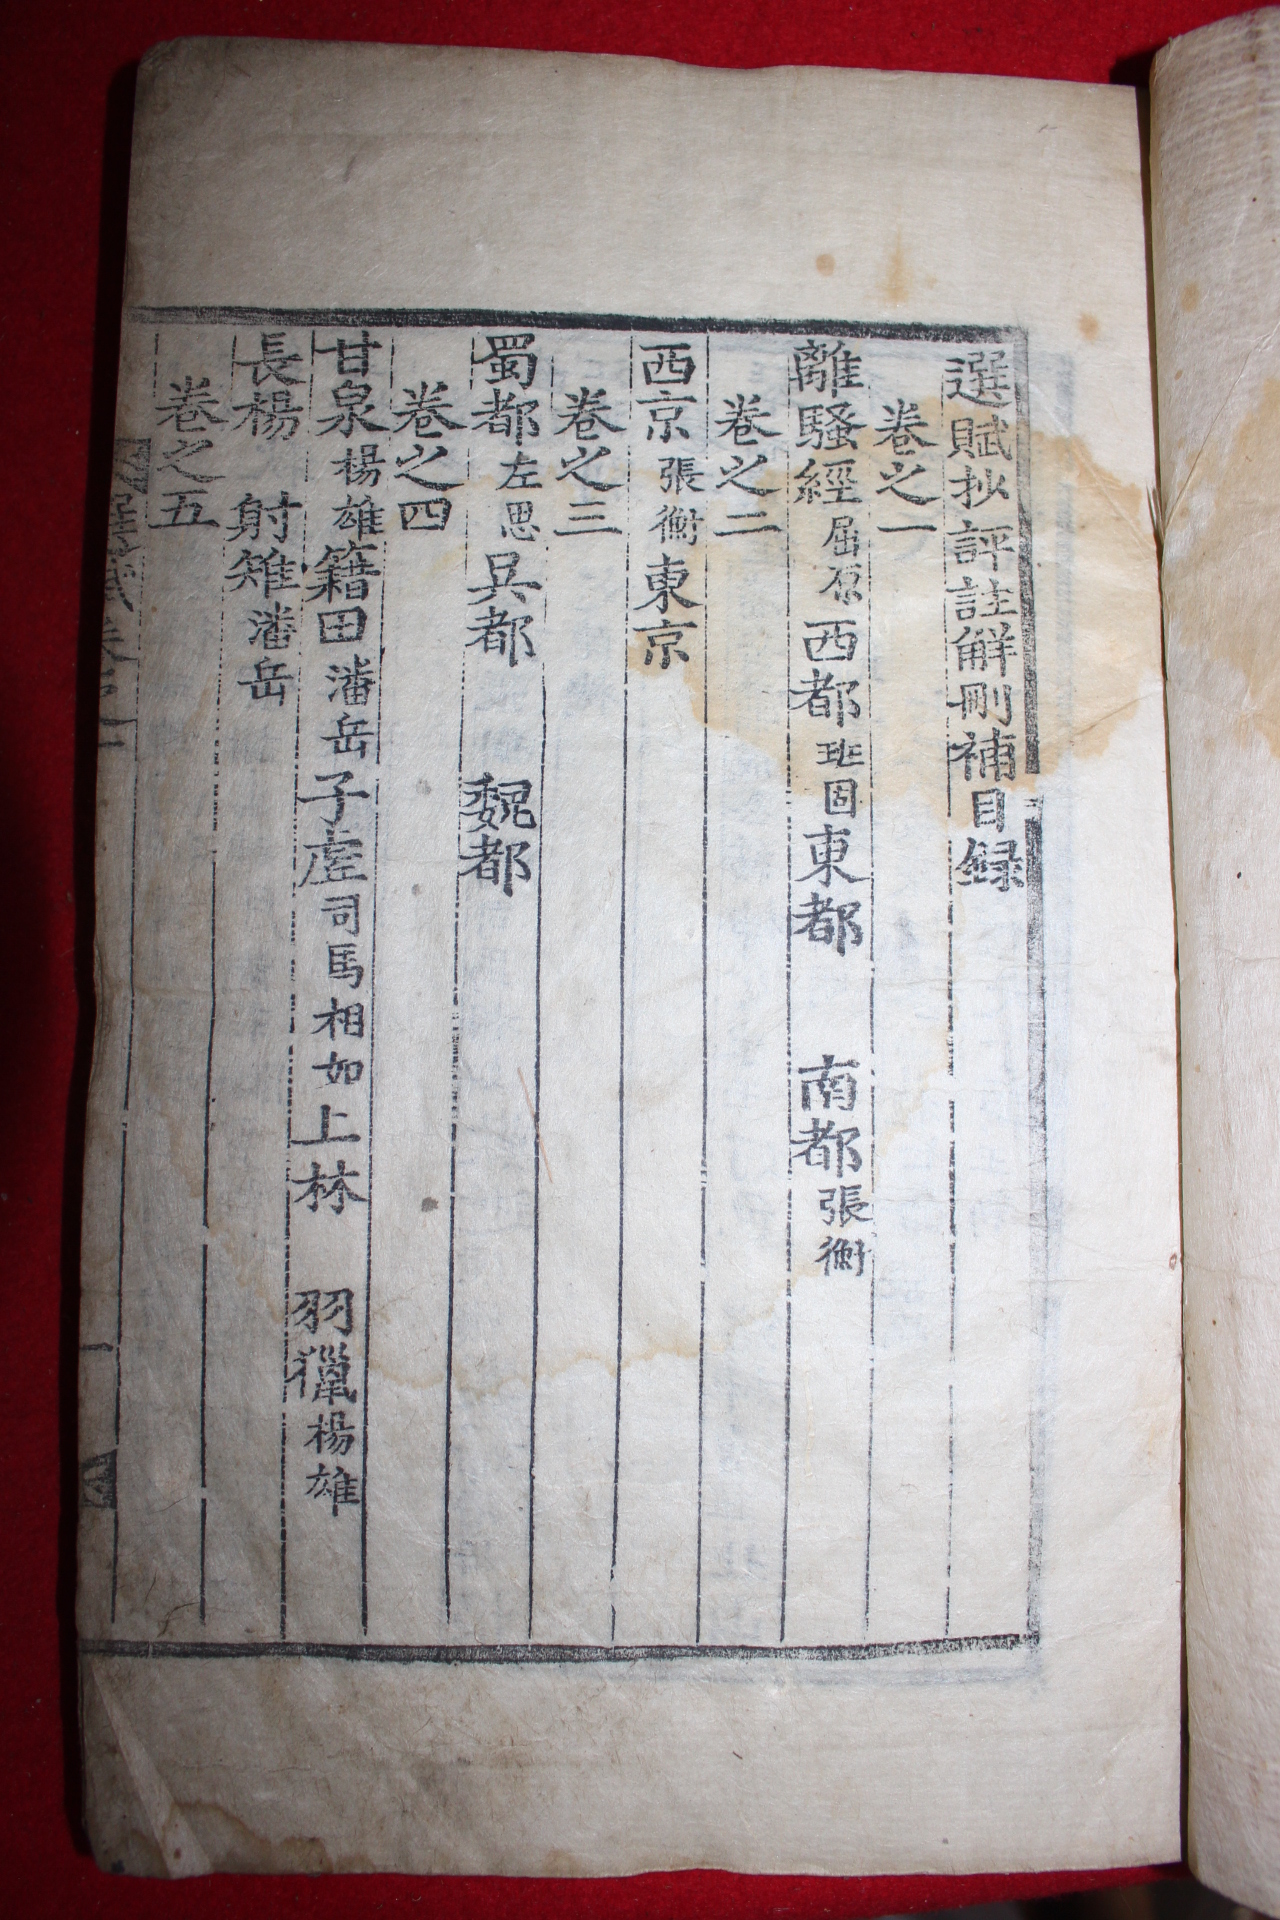 選賦抄評註解刪補目録
卷之一
離騷經屈原西都班固東都 南都張衡
卷之二
西京張衡東京
卷之三
蜀都左思吳都 魏都
卷之四
甘泉楊雄籍田潘岳子虛司馬相如上林 羽獵楊雄
長楊 射雉潘岳
卷之五